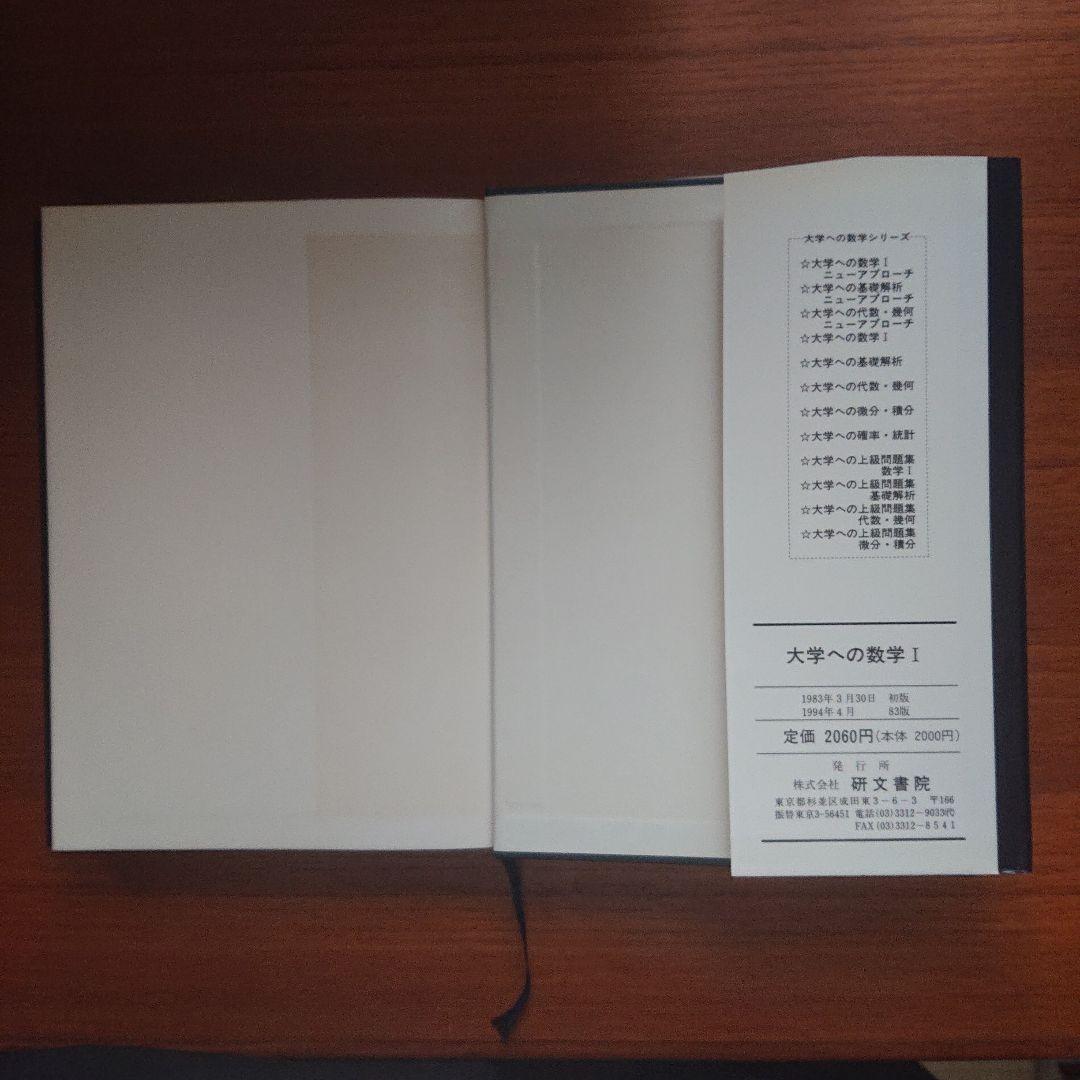 大学への数学シリーズ
☆大学への数学Ⅰ
ニューアプローチ
☆大学への基礎解析
ニューアプローチ
☆大学への代数・幾何
ニューアプローチ
☆大学への数学Ⅰ
☆大学への基礎解析
☆大学への代数・幾何
☆大学への微分・積分
☆大学への確率・統計
☆大学への上級問題集
数学Ⅰ
☆大学への上級問題集
基礎解析
☆大学への上級問題集
代数・幾何
☆大学への上級問題集
微分・積分
大学への数学Ⅰ
1983年3月30日 初版
1994年4月 83版
定価 2060円(本体 2000円)
発行所
株式会社 研文書院
東京都杉並区成田東3-6-3 〒166
振替東京3-56451 電話(03)3312-9033代
FAX(03)3312-8541